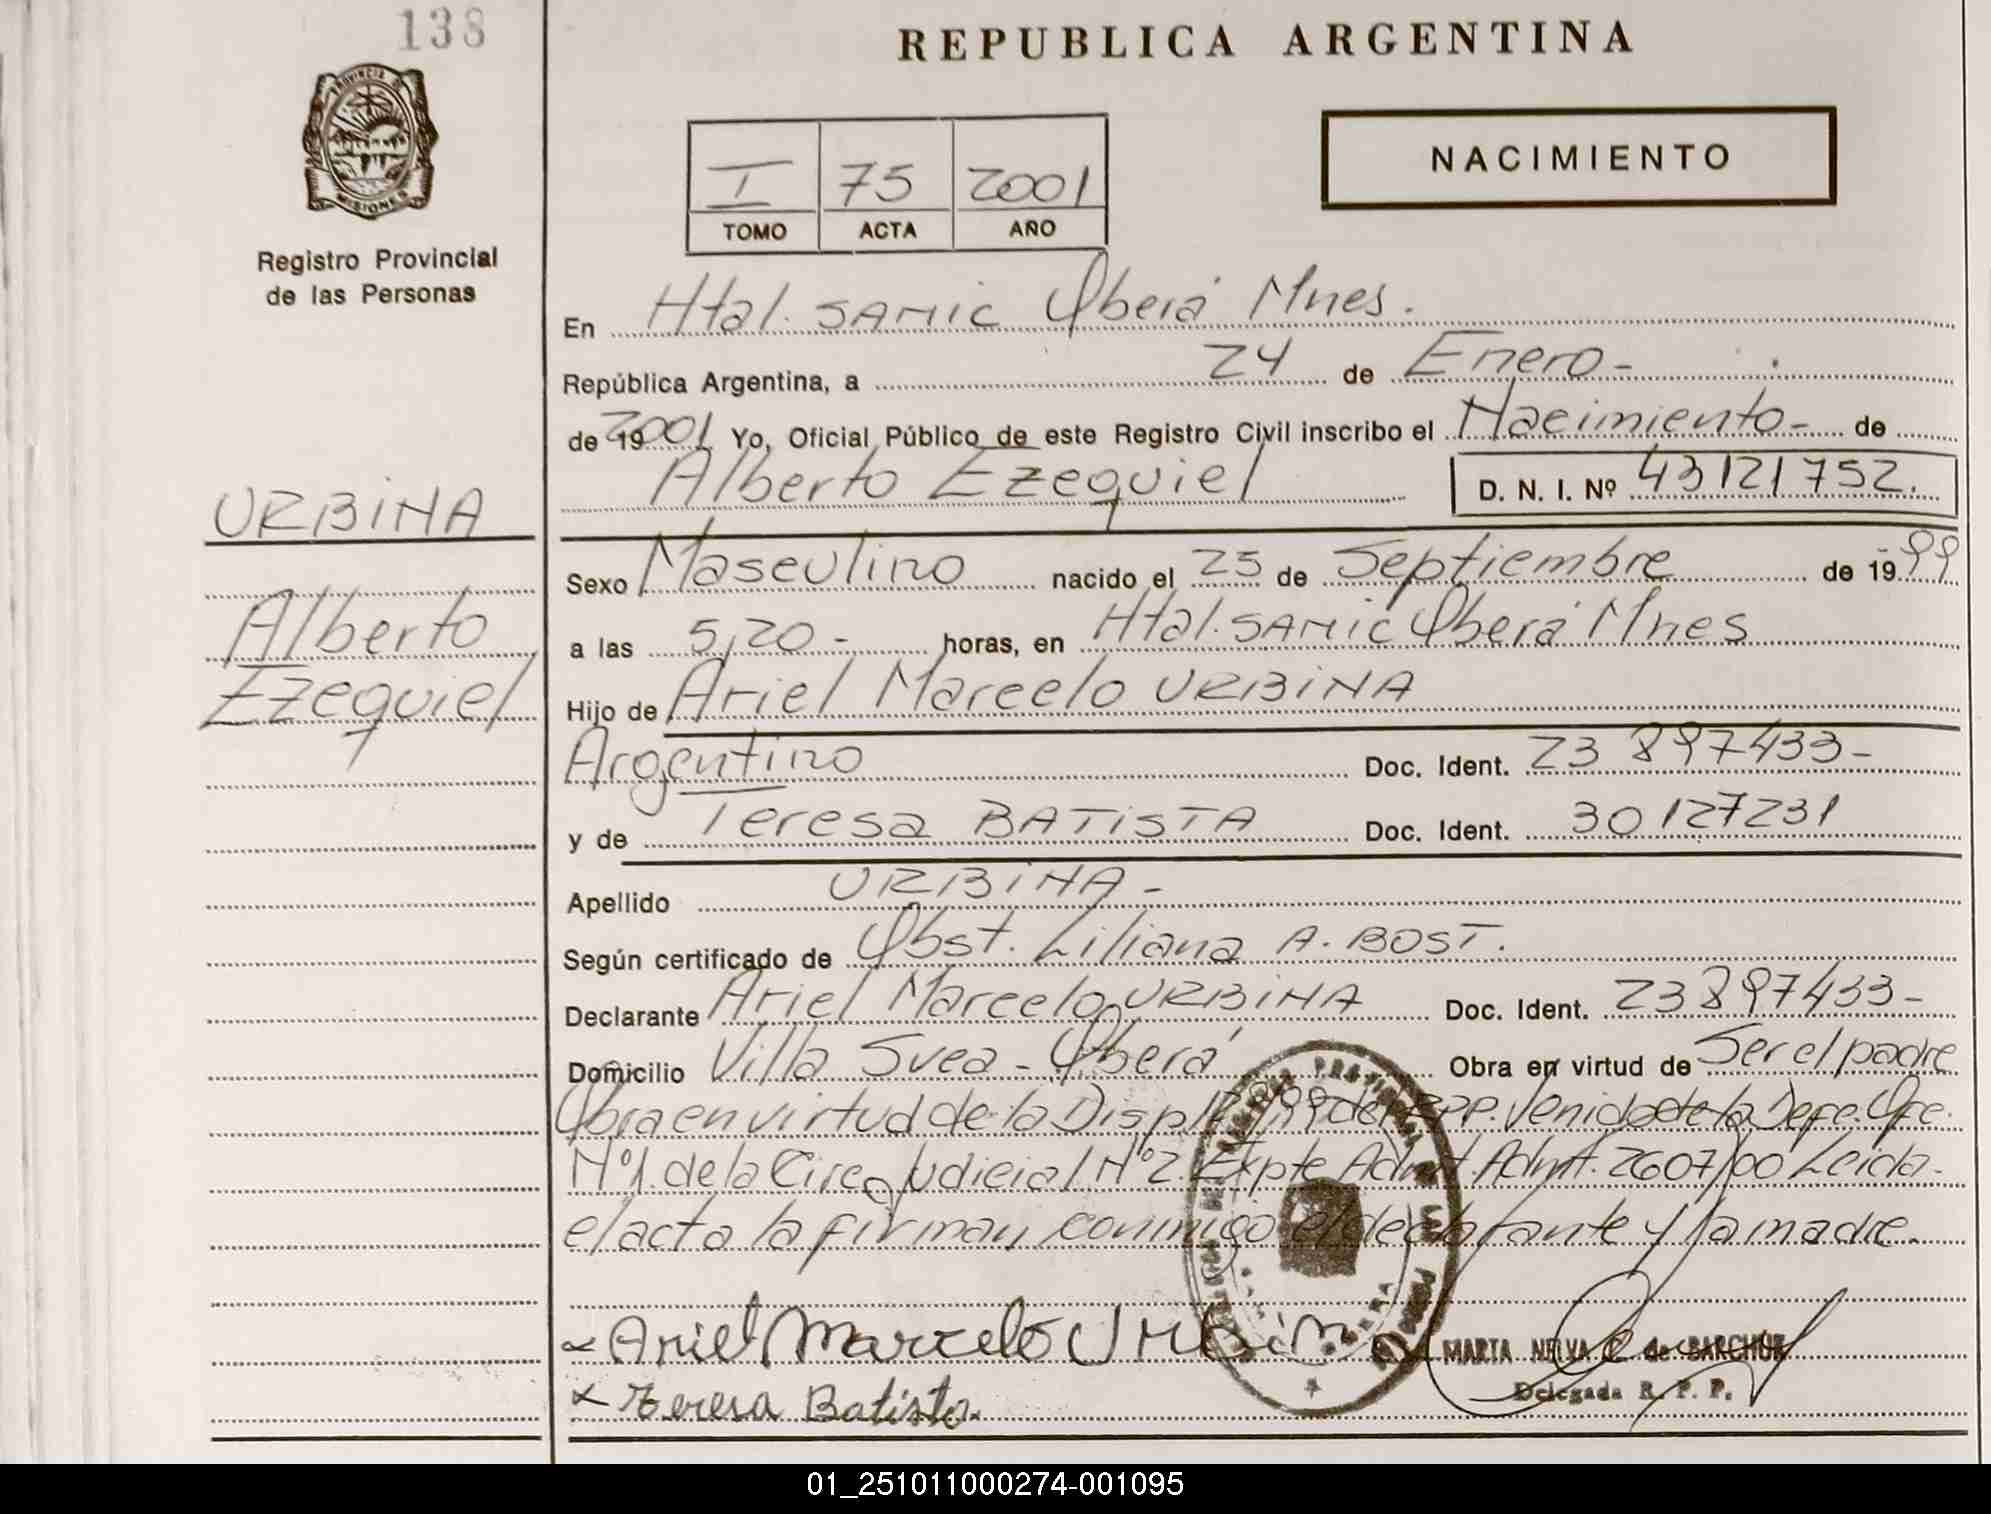 138
REPUBLICA ARGENTINA
PROVINCIA DE
MISIONES
Registro Provincial
de las Personas
I 75 2001
TOMO ACTA AÑO
NACIMIENTO
En Htal. SAMIC Oberá Mnes.
República Argentina, a 24 de Enero-
de 19 2001 Yo, Oficial Público de este Registro Civil inscribo el Nacimiento- de
Alberto Ezequiel D. N. I. Nº 43121752.
URBINA
Alberto
Ezequiel
Sexo Masculino nacido el 25 de Septiembre de 1999
a las 5,20- horas, en Htal. SAMIC Oberá Mnes
Hijo de Ariel Marcelo URBINA
Argentino Doc. Ident. 23 897433-
y de Teresa BATISTA Doc. Ident. 30127231
Apellido URBINA-
Según certificado de Obst. Liliana A. BOST.
Declarante Ariel Marcelo URBINA Doc. Ident. 23897433-
Domicilio Villa Svea - Oberá Obra en virtud de Ser el padre
Obra en virtud de la Disp. 99 del RPP. Venido de la Defe. Ofc.
Nº1. de la Circ. Judicial Nº2. Expte Admt. 2607/00 Leida
el acta la firman conmigo el declarante y la madre.
Ariel Marcelo Urbina
MARTA NELVA C de BARCHUK
Delegada R. P. P.
Teresa Batista.
01_251011000274-001095